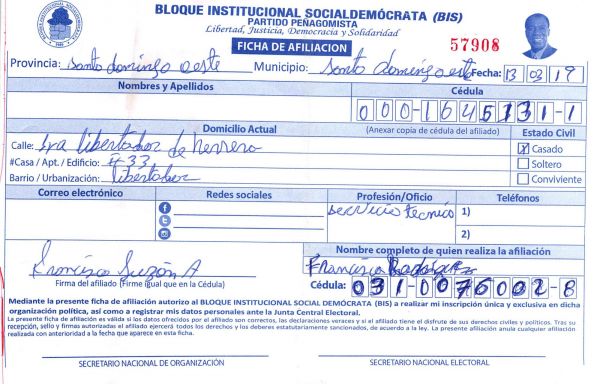 BLOQUE INSTITUCIONAL SOCIALDEMÓCRATA (BIS)
PARTIDO PEÑAGOMISTA
Libertad, Justicia, Democracia y Solidaridad
FICHA DE AFILIACION
57908
Provincia: Santo domingo oeste Municipio: Santo domingo oeste Fecha: 13 03 19
Nombres y Apellidos Cédula
000-1645131-1
Domicilio Actual (Anexar copia de cédula del afiliado) Estado Civil
Calle: 1ra libertador de Herrera X Casado
#Casa / Apt. / Edificio: # 33 Soltero
Barrio / Urbanización: libertador Conviviente
Correo electrónico Redes sociales Profesión/Oficio Teléfonos
servicio tecnico 1)
2)
Nombre completo de quien realiza la afiliación
Francisco Suzón A Francisco Rodriguez
Firma del afiliado (Firme igual que en la Cédula) Cédula: 031-0076002-8
Mediante la presente ficha de afiliación autorizo al BLOQUE INSTITUCIONAL SOCIAL DEMÓCRATA (BIS) a realizar mi inscripción única y exclusiva en dicha
organización política, así como a registrar mis datos personales ante la Junta Central Electoral.
La presente ficha de afiliación es válida si los datos ofrecidos por el afiliado son correctos, las declaraciones veraces y si el afiliado tiene el disfrute de sus derechos civiles y políticos. Tras su
recepción, sello y firmas autorizadas el afiliado ejercerá todos los derechos y los deberes estatutariamente sancionados, de acuerdo a la ley. La presente afiliación anula cualquier afiliación
realizada con anterioridad a la fecha que aparece en esta ficha.
SECRETARIO NACIONAL DE ORGANIZACIÓN SECRETARIO NACIONAL ELECTORAL